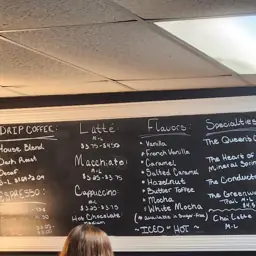 DRIP COFFEE:
House Blend
Dark Roast
Decaf
ESPRESSO:
Latté
M-L
$3.75-$4.50
Macchiato:
M-L
Cappuccino:
M-L
$3.25-$3.75
Hot Chocolate:
Flavors
- Vanilla
- French Vanilla
- Caramel
- Salted Caramel
- Hazelnut
- Butter Toffee
- Mocha
- White Mocha
(* available in Sugar-Free)
~ICED * HOT~
Specialties
The Queen's
The Hearts of
Mineral Spri
The Conducto
The Greenwa
Chai Latte
M-L